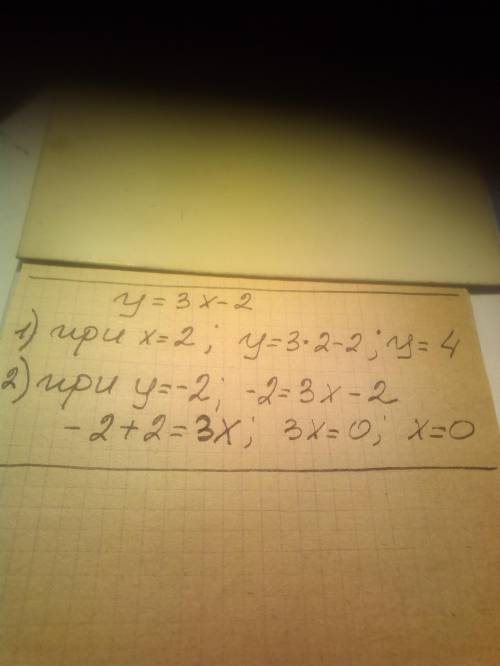 y = 3x - 2
1) при x = 2 ; y = 3 · 2 - 2 ; y = 4
2) при y = -2 ; -2 = 3x - 2
- 2 + 2 = 3x ; 3x = 0 ; x = 0